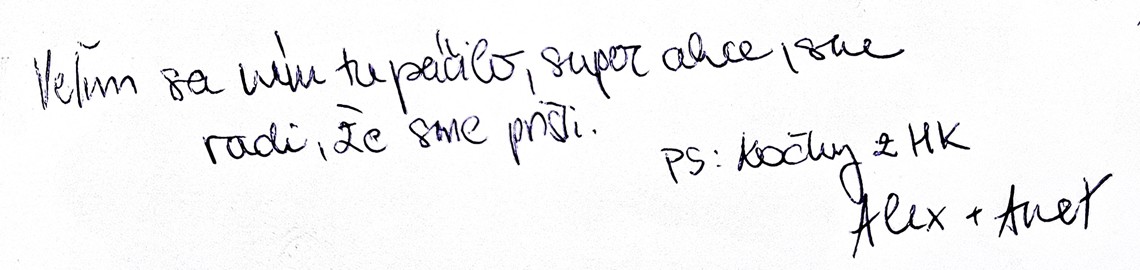 Veľim sa nám tu páčilo, super akce, sme
radi, že sme prišli.
PS: kočky z HK
Alex + Anet